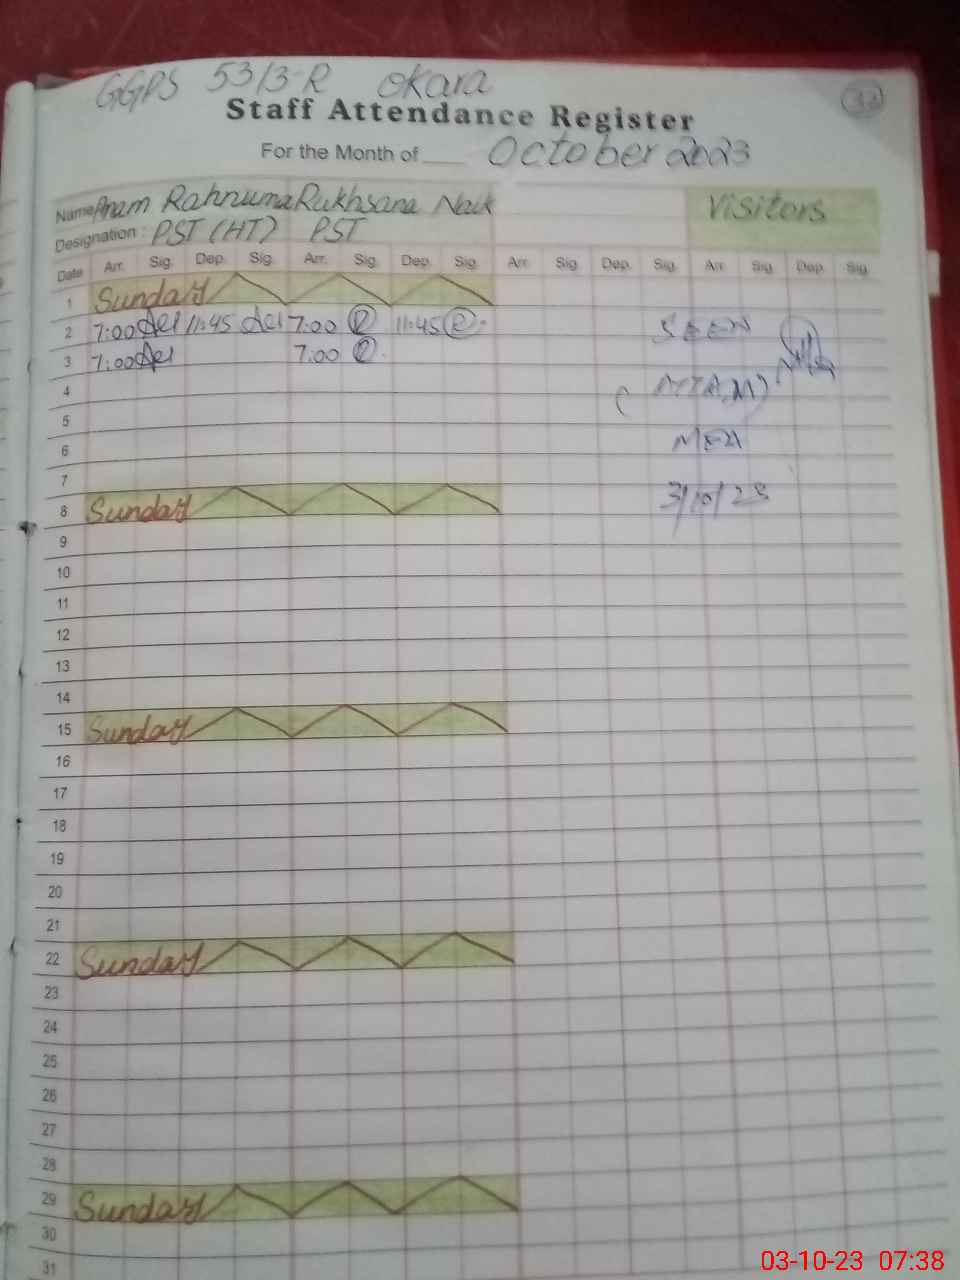 GGPS 53/3-R Okara
32
Staff Attendance Register
For the Month of October 2023
Name Anam Rahnuma Rukhsana Naik Visitors
Designation : PST (HT) PST
Date Arr. Sig. Dep. Sig. Arr. Sig. Dep. Sig. Arr. Sig. Dep. Sig. Arr. Sig. Dep. Sig.
1 Sunday
2 7:00 11:45 7:00 R 11:45 R SEEN
3 7:00 7:00 R
4
5
6 MEA
7
8 Sunday 3/10/23
9
10
11
12
13
14
15 Sunday
16
17
18
19
20
21
22 Sunday
23
24
25
26
27
28
29 Sunday
30
31
03-10-23 07:38